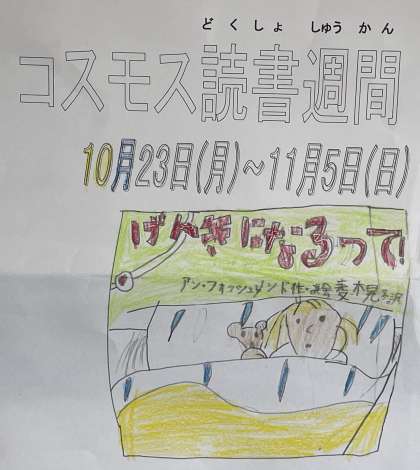 どくしょ しゅうかん
コスモス読書週間
10月23日(月)~11月5日(日)
げんきになるって!
アン・フォッシュリンド作・絵 菱木晃子訳